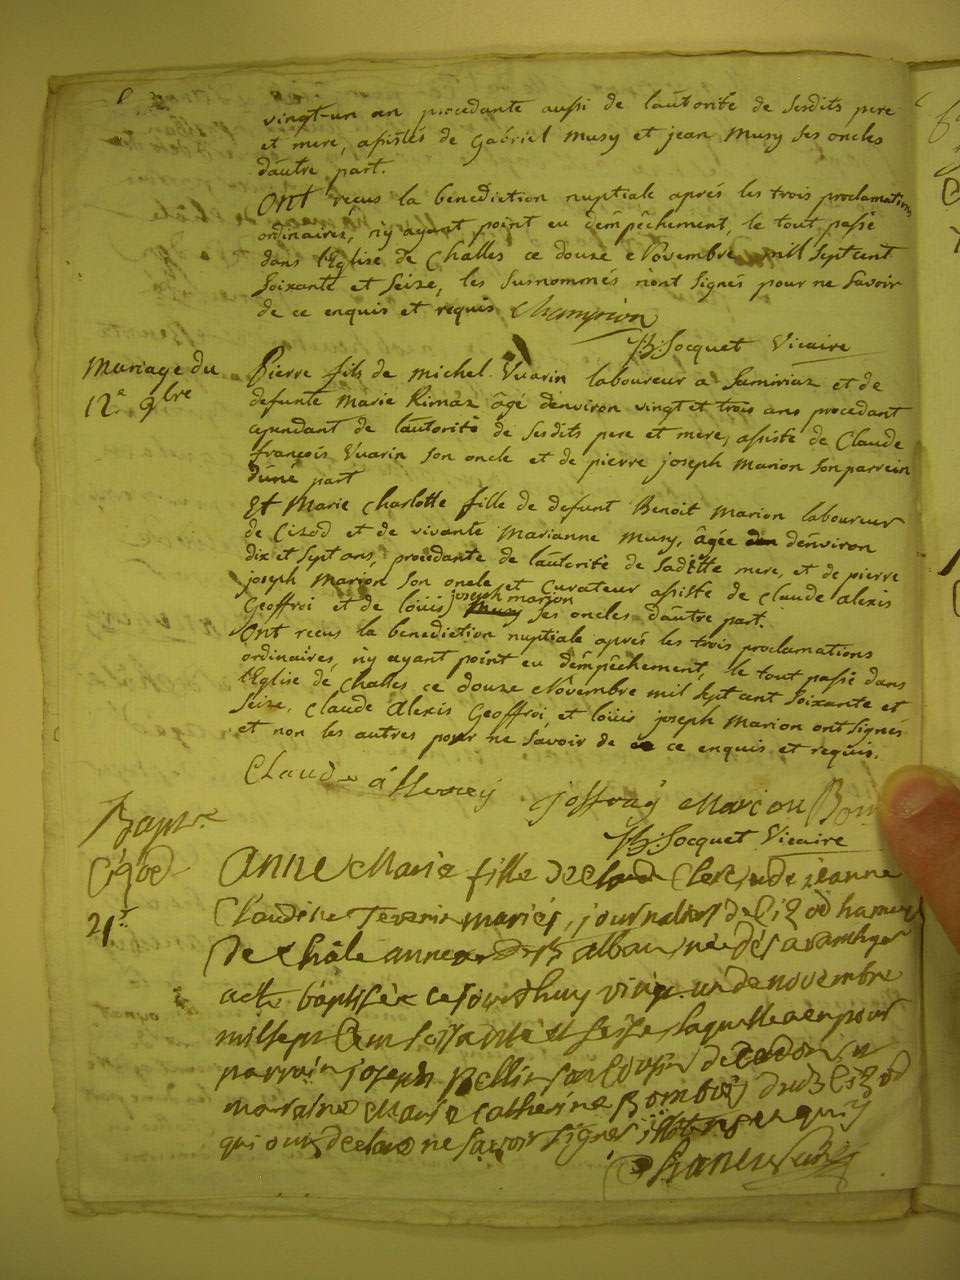 vingt-un an procedante aussi de l'autorité de sesdits pere
et mere, assistés de Gabriel Musy et jean Musy ses oncles
d'autre part.
Ont reçus la benediction nuptiale aprés les trois proclamations
ordinaires, n'y ayant point eu d'émpêchement, le tout passé
dans l'Eglise de Challes ce douze Novembre mill sept cent
soixante et seize, les susnommés n'ont signés pour ne savoir
de ce enquis et requis Champion
Socquet Vicaire
Mariage du
12e 9bre
Pierre fils de michel Vuarin laboureur a et de
defunte Marie Rimaz âgé d'environ vingt et trois ans procedant
cependant de l'autorité de sesdits pere et mere, assisté de Claude
françois Vuarin son oncle et de pierre joseph Marion son parrein
d'une part
Et Marie Charlotte fille de defunt Benoit Marion laboureur
de Cizod et de vivante Marianne Musy, âgée d'énviron
dix et sept ans, procedante de l'autorité de sadette mere, et de pierre
joseph Marion son oncle et Curateur assiste de Claude alexis
Geoffroi et de loüis joseph marion ses oncles d'autre part.
Ont recus la benediction nuptiale aprés les trois proclamations
ordinaires, n'y ayant point eu d'émpêchement, le tout passé dans
l'Eglise de Challes ce douze Novembre mil sept cent soixante et
seize, Claude Alexis Geoffroi, et loüis joseph Marion ont signés
et non les autres pour ne savoir de ce enquis et requis.
Claude joffray Marion
Socquet Vicaire
Bapt.
Cizod
21
Anne Marie fille de Claude Clerc et de jeanne
Claudine mariés, journaliers de Cizod hameau
de Châle annexe de St alban née dés avant hyer
baptisée ce jourdhuy vingt un de novembre
mille sept cent soixante et seize laquelle a eu pour
parrain joseph et
marraine Marie Catherine dudt Cizod
qui ont declaré ne savoir signer enquis